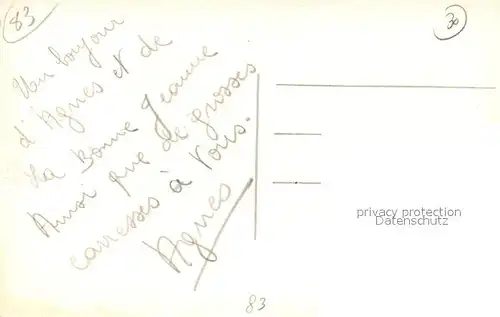 83
30
Un bonjour
d'Agnes et de
La Bonne Jeanne
Ainsi que de grosses
carresses à vous.
Agnes
privacy protection
Datenschutz
83